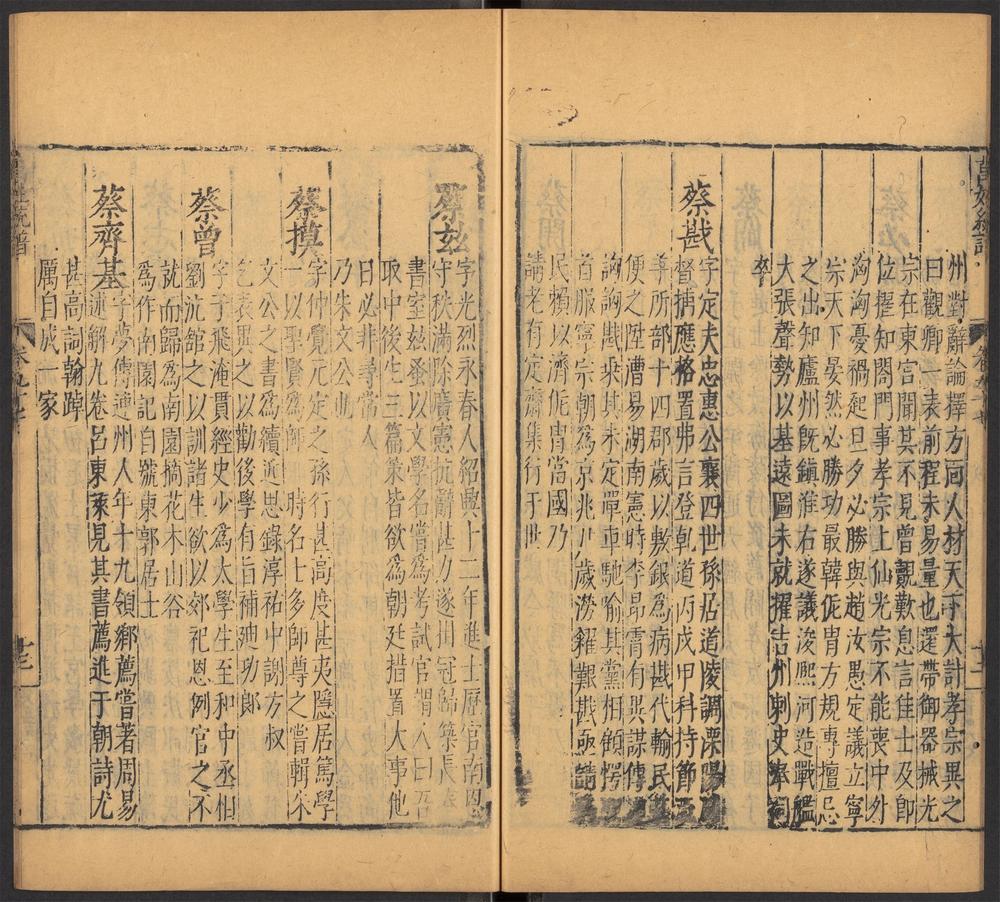 州對辭論擇方面人材天下大計孝宗異之
曰觀卿一表前程未易量也還帶御器械光
宗在東宮聞其不見曾覿歎息言佳士及即
位擢知閤門事孝宗上仙光宗不能喪中外
洶洶憂禍起旦夕必勝與趙汝愚定議立寧
宗天下晏然必勝功最韓侂冑方規專擅忌
之出知廬州既鎮淮右遂議浚熙河造戰艦
大張聲勢以基遠圖未就擢吉州刺史奉祠
卒
蔡戡
字定夫忠惠公襄四世孫居道陵調溧陽
督捕應格置弗言登乾道丙戌甲科持節
尊所部十四郡歲以敷銀為病戡代輸民
便之陞漕易湖南憲時李昂霄有異謀傳
詾詾戡乘其未定單車馳喻其黨相顧愕
首服寧宗朝為京兆尹歲澇糴艱戡亟請
民賴以濟侂冑當國乃
請老有定齋集行于世
蔡玆
字光烈永春人紹興十二年進士歷官南恩
守秩滿除廣憲抗辭甚力遂掛冠歸築長
書室玆蚤以文學名嘗為考試官謂人曰吾
取中後生三篇策皆欲為朝廷措置大事他
日必非尋常人
乃朱文公也
蔡摸
字仲覺元定之孫行甚高度甚夷隱居篤學
一以聖賢為師一時名士多師尊之嘗輯朱
文公之書為續近思錄淳祐中謝方叔
乞表異之以勸後學有旨補廸功郎
蔡曾
字子飛淹貫經史少為太學生至和中丞相
劉沆舘之以訓諸生欲以郊祀恩例官之不
就而歸為南園摘花木山谷
為作南園記自號東郭居士
蔡齊基
字夢傳連州人年十九領鄉薦嘗著周易
述解九卷呂東萊見其書薦進于朝詩尤
甚高詞翰踔
厲自成一家